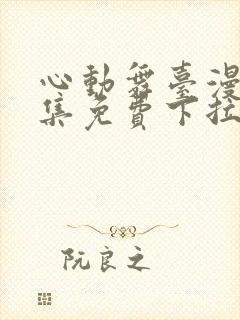 心動舞臺漫
集免費下拉
阮良之